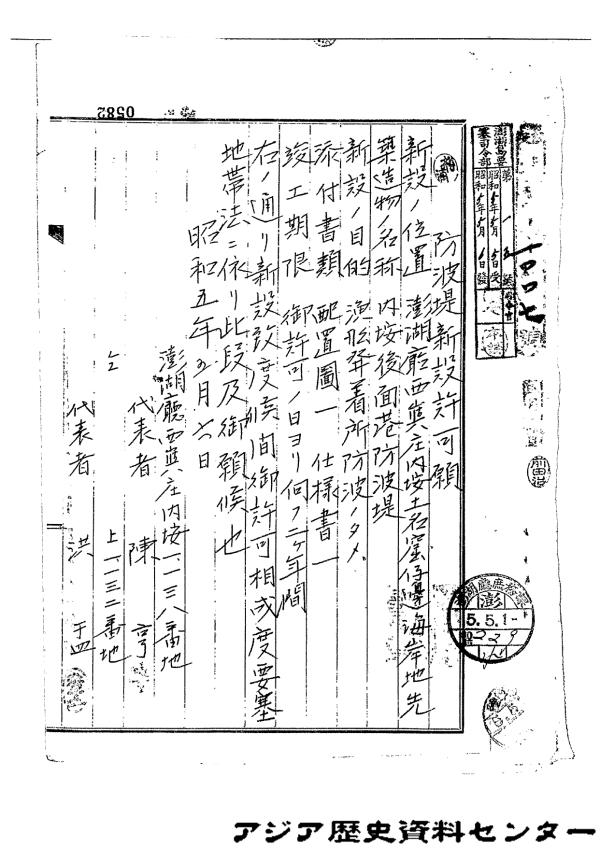 0582
澎湖島要塞司令部
昭和5年5月5日受
昭和5年5月6日發
一四〇七
前田治
澎
5.5.1
防波堤新設許可願
新設ノ位置 澎湖廳西嶼庄内垵土名窑仔邊海岸地先
築造物ノ名称 内垵後面港防波堤
新設ノ目的 漁船發着所防波ノタメ
添付書類 配置圖一 仕様書一
竣工期限 御許可ノ日ヨリ向フ二ヶ年間
右ノ通リ新設致度候間御許可相成度要塞
地帯法ニ依リ此段及御願候也
昭和五年五月六日
澎湖廳西嶼庄内垵一一三八番地
代表者 陳 亨
仝 上 一一三二番地
代表者 洪
アジア歴史資料センター